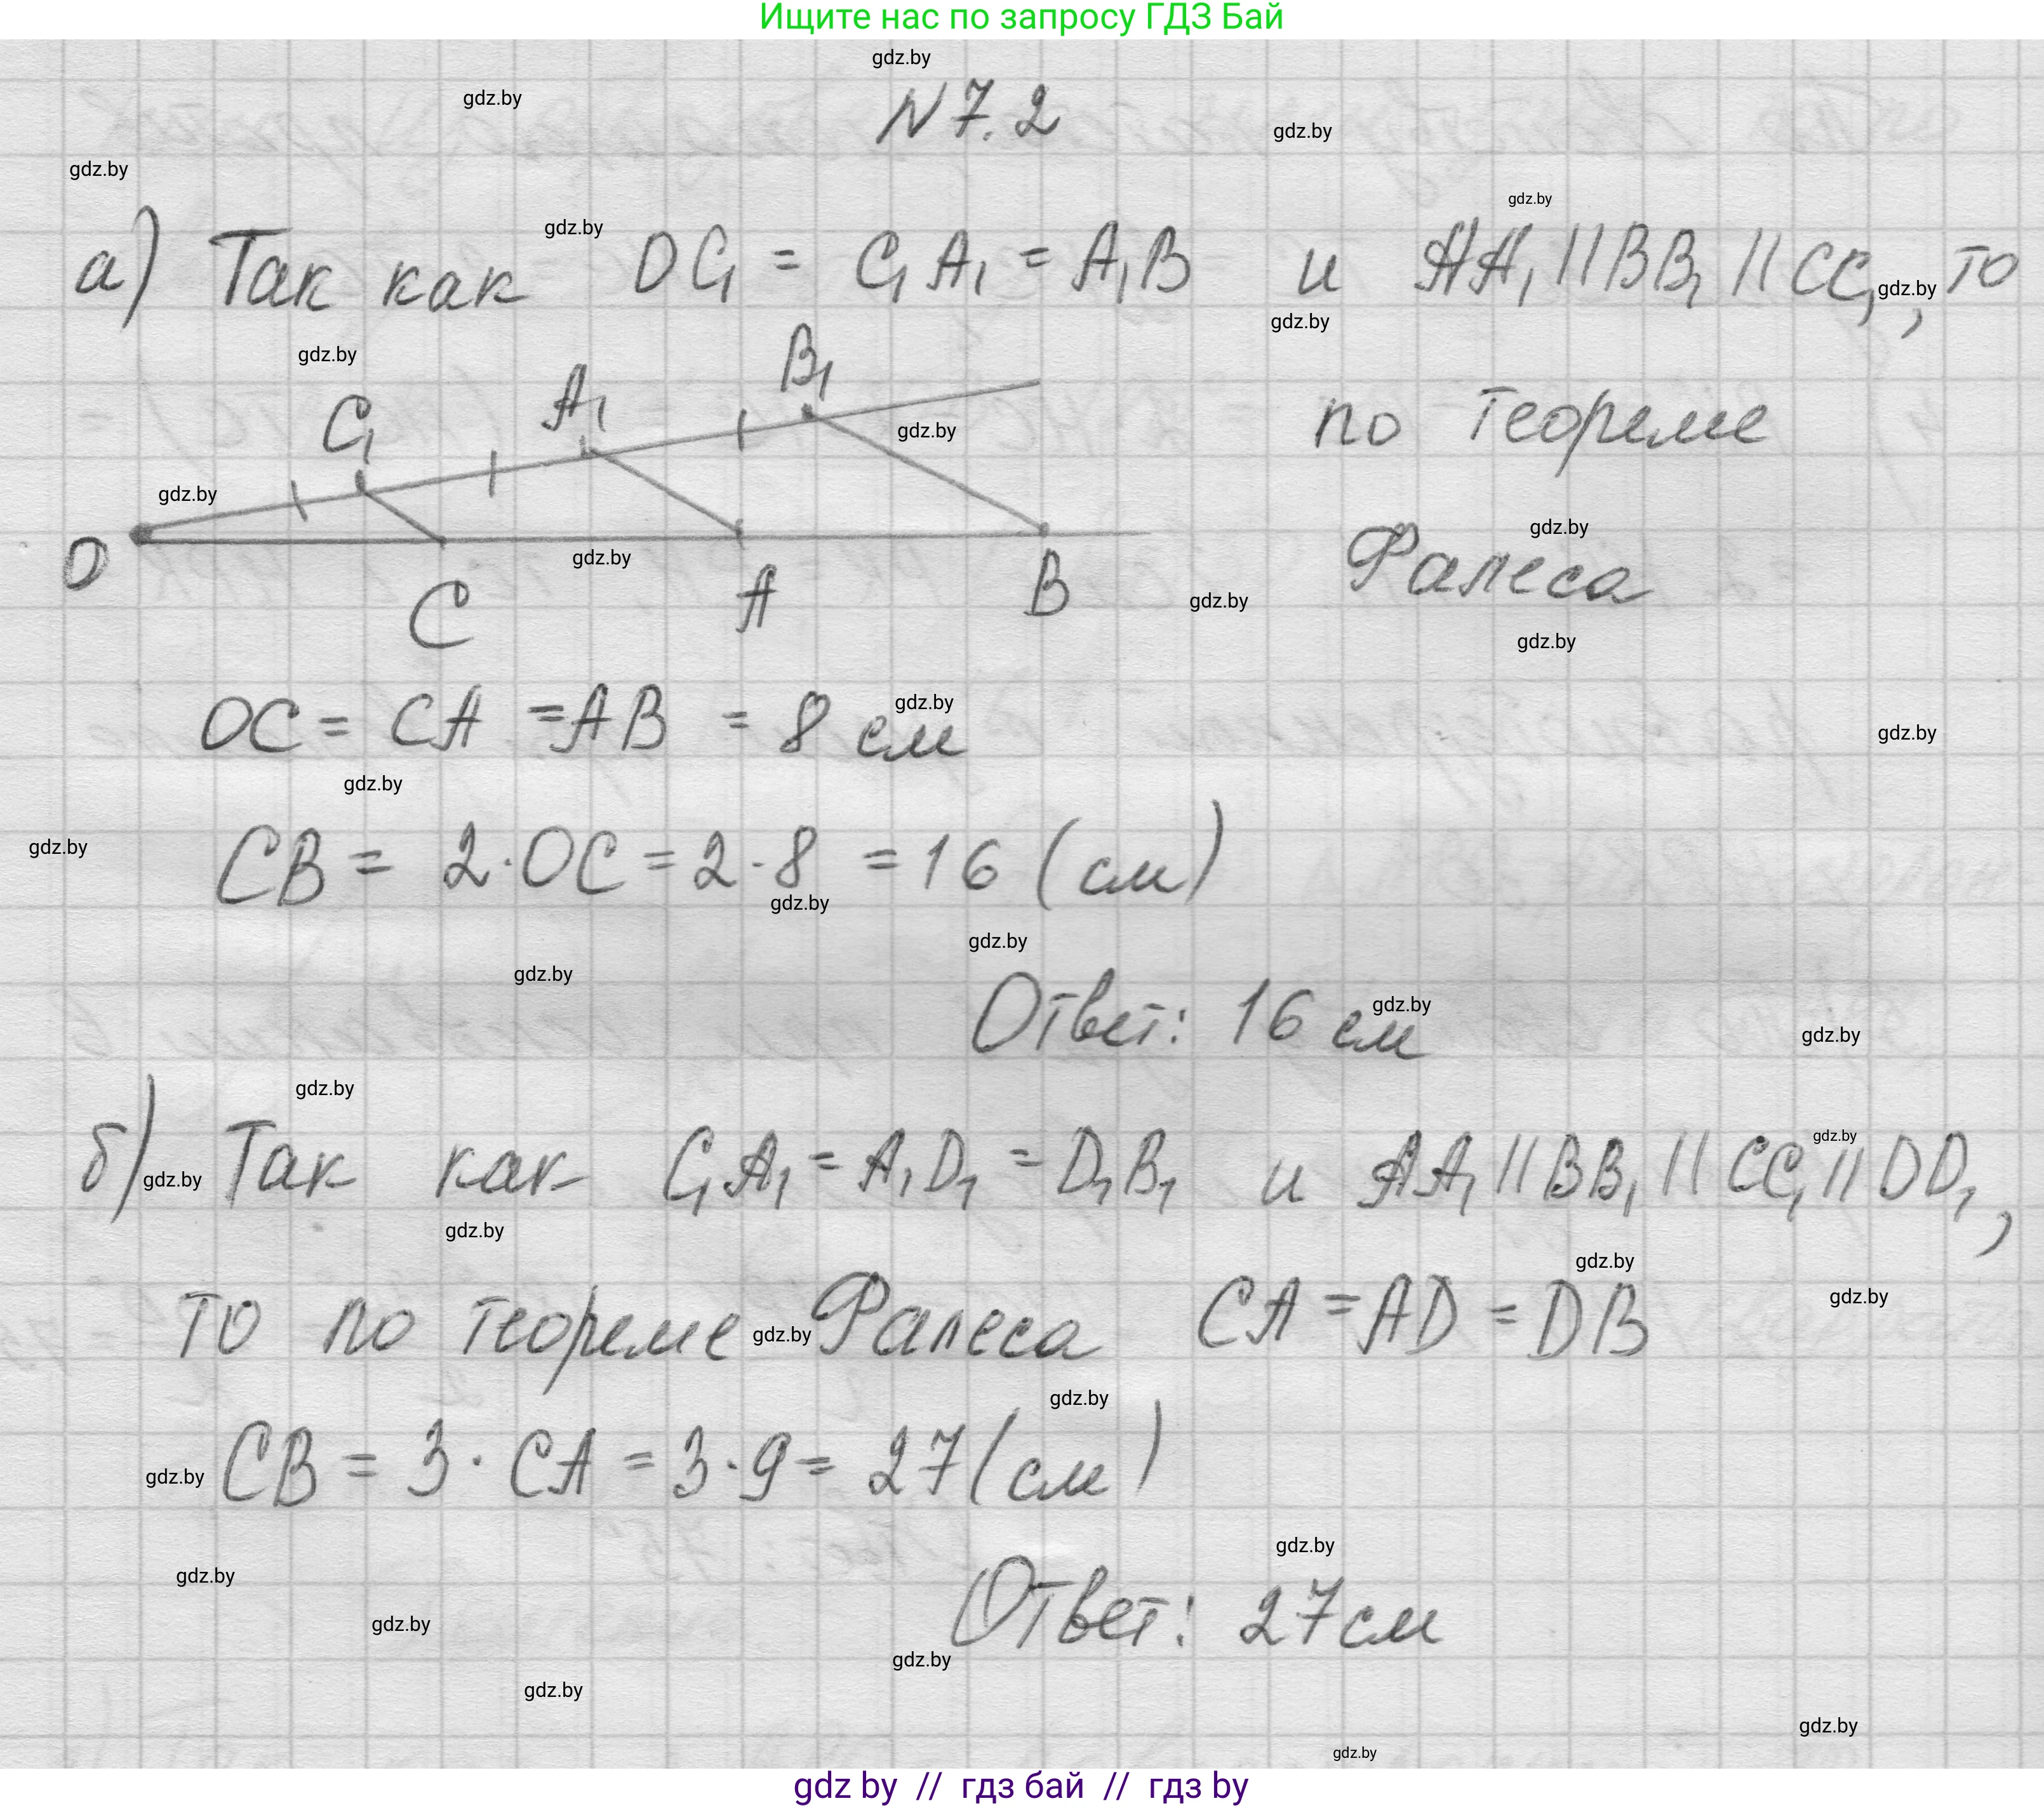 Ищите нас по запросу ГДЗ Бай
N 7.2
а) Так как OC₁ = C₁A₁ = A₁B и AA₁ || BB₁ || CC₁, то
C₁ A₁ B₁
по теореме
O C A B
Фалеса
OC = CA = AB = 8 см
CB = 2·OC = 2·8 = 16 (см)
Ответ: 16 см
б) Так как C₁A₁ = A₁D₁ = D₁B₁ и AA₁ || BB₁ || CC₁ || DD₁,
то по теореме Фалеса CA = AD = DB
CB = 3·CA = 3·9 = 27 (см)
Ответ: 27 см
gdz by // гдз бай // гдз by